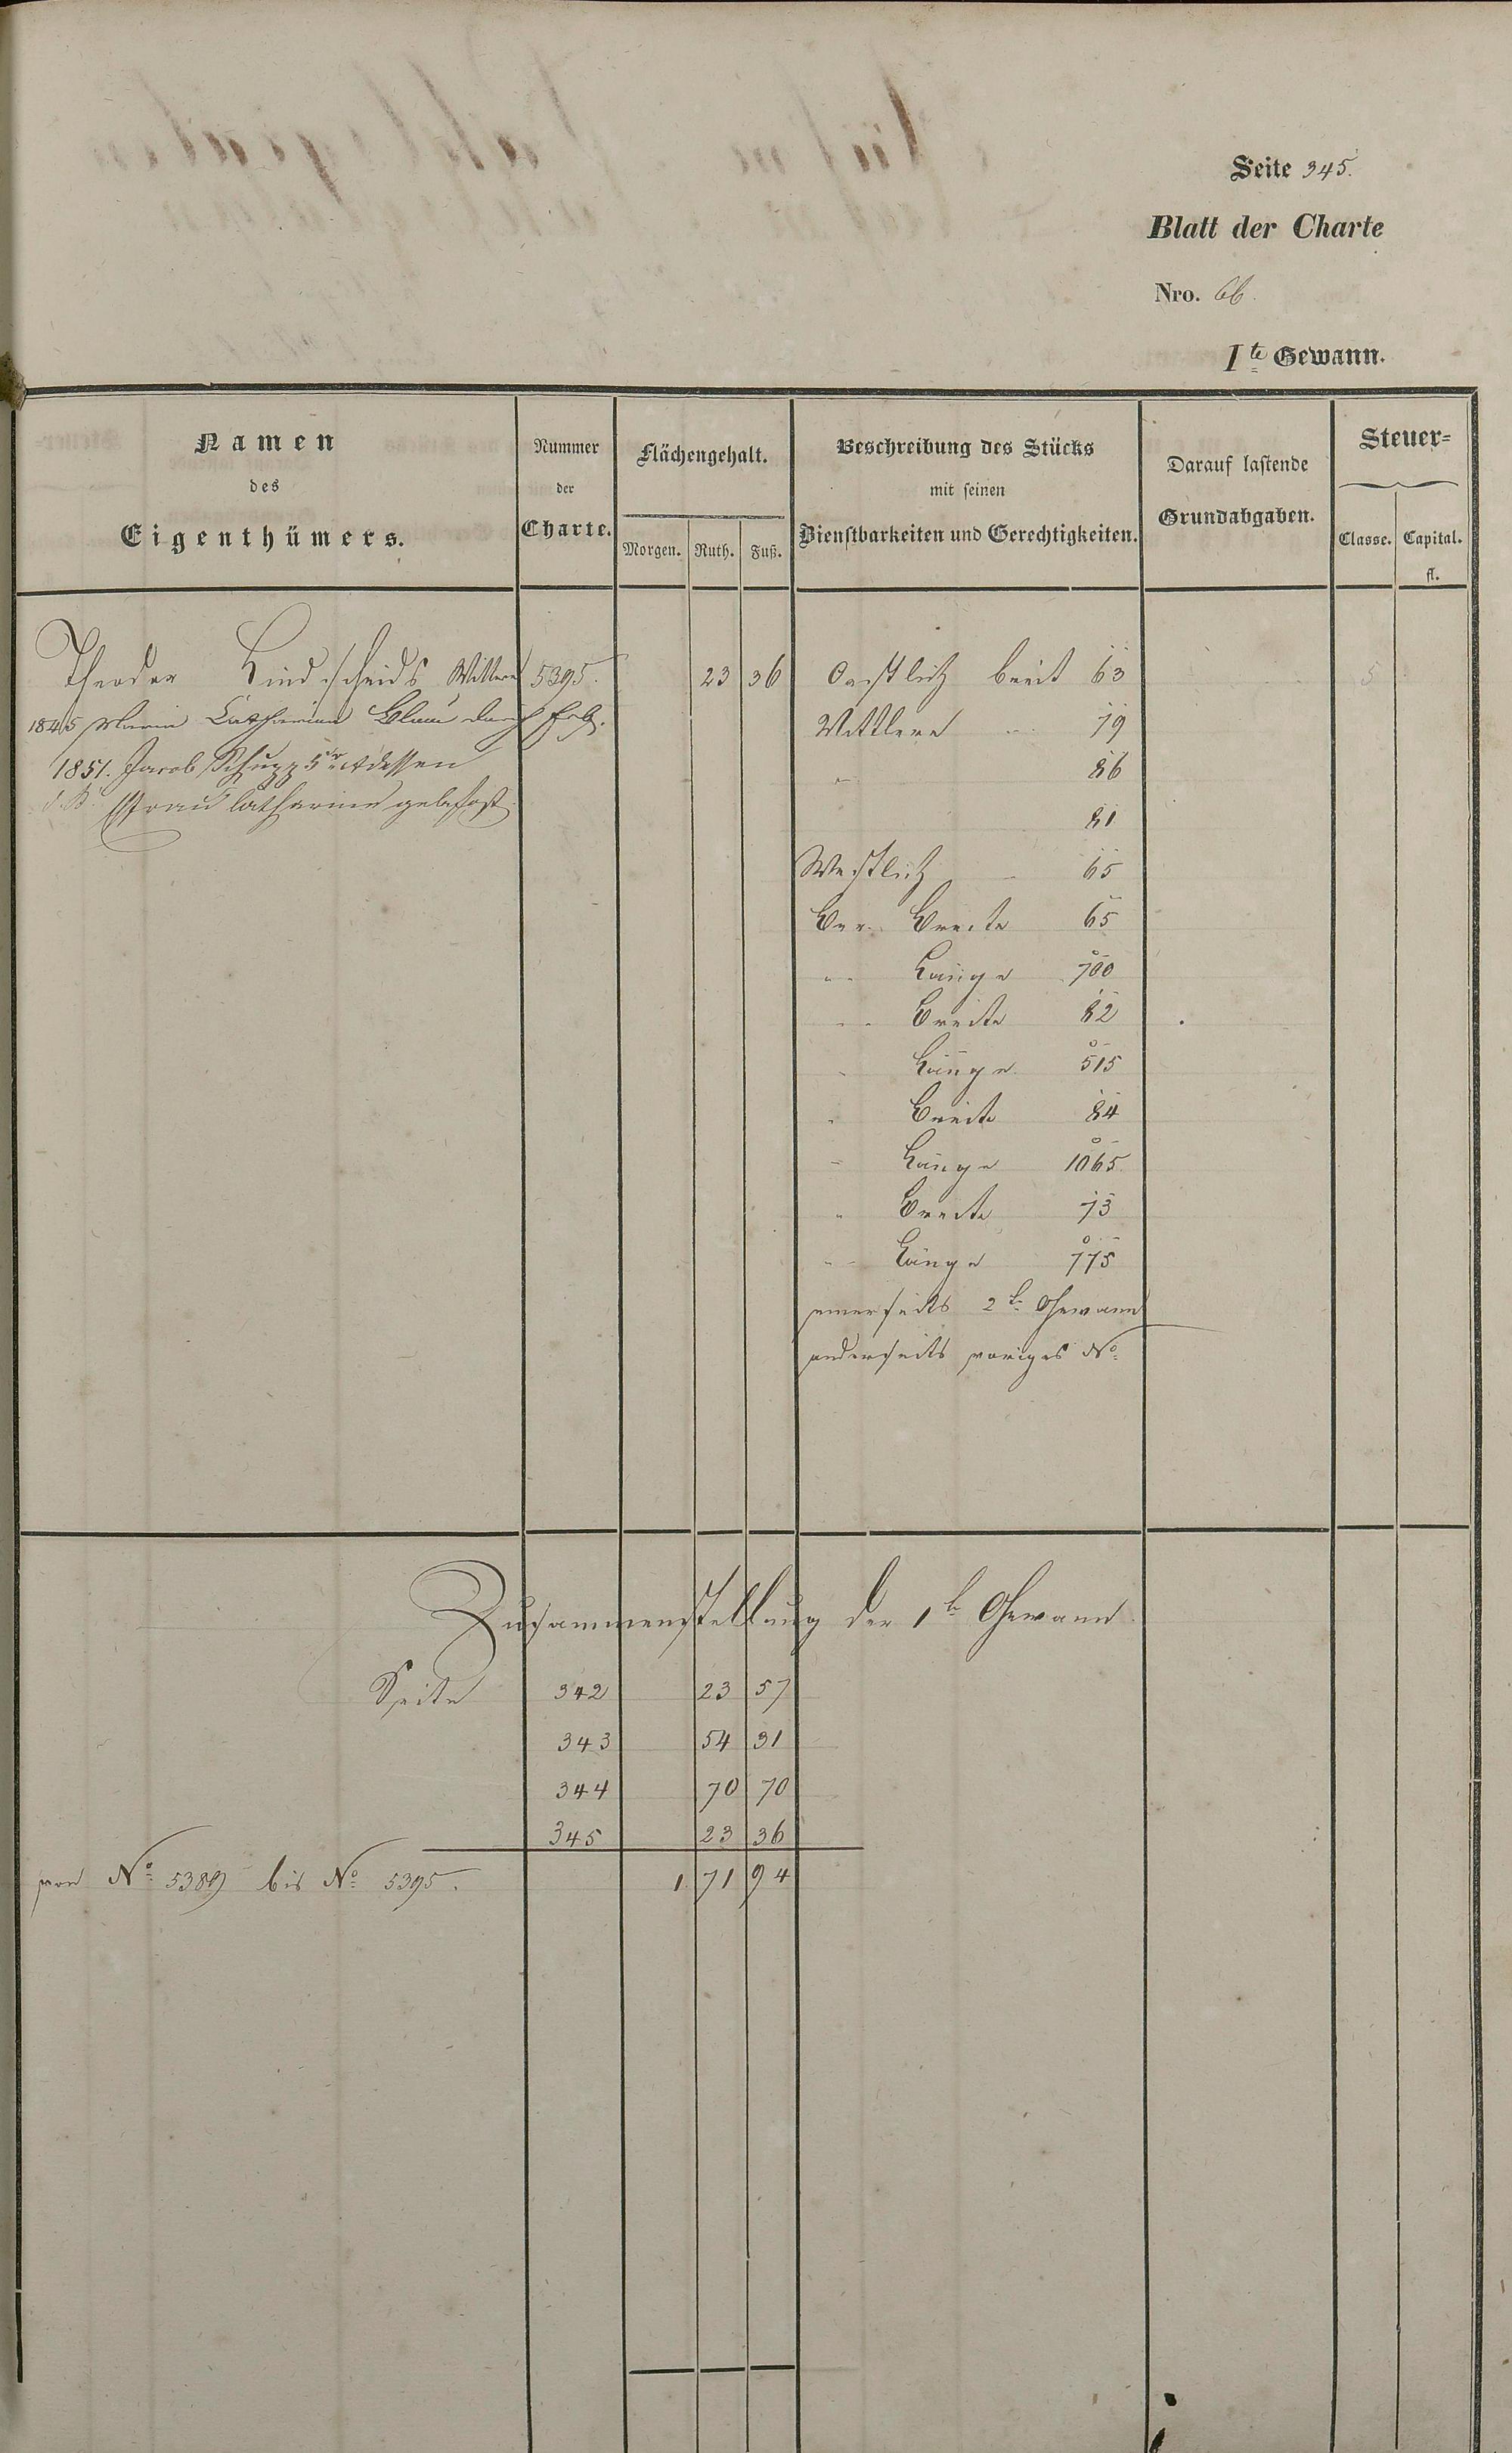 Seite 345.
Blatt der Charte
Nro. 66.
I te Gewann.
Namen des Eigenthümers.
Nummer der Charte.
Flächengehalt.
Morgen. Ruth. Fuß.
Beschreibung des Stücks mit seinen Dienstbarkeiten und Gerechtigkeiten.
Darauf lastende Grundabgaben.
Steuer-
Classe. Capital. fl.
Theodor Hindscheids Wittwe 5395. 23 36 Oestlich breit 63 5
1845 Maria Catharina Blum durch Erb.
Mittlere 79
1851. Jacob Schupp 5r & dessen
" 86
Frau Catharine geb.
81
Westlich 65
Ber. Breite 65
" Länge 700
" Breite 82
" Länge 515
" Breite 84
" Länge 1065
" Breite 73
" Länge 775
einerseits 2te Gewann
anderseits voriges No
Zusammenstellung der 1te Gewann
Seite 342 23 57
343 54 31
344 70 70
345 23 36
von No 5389 bis No 5395. 1 71 94